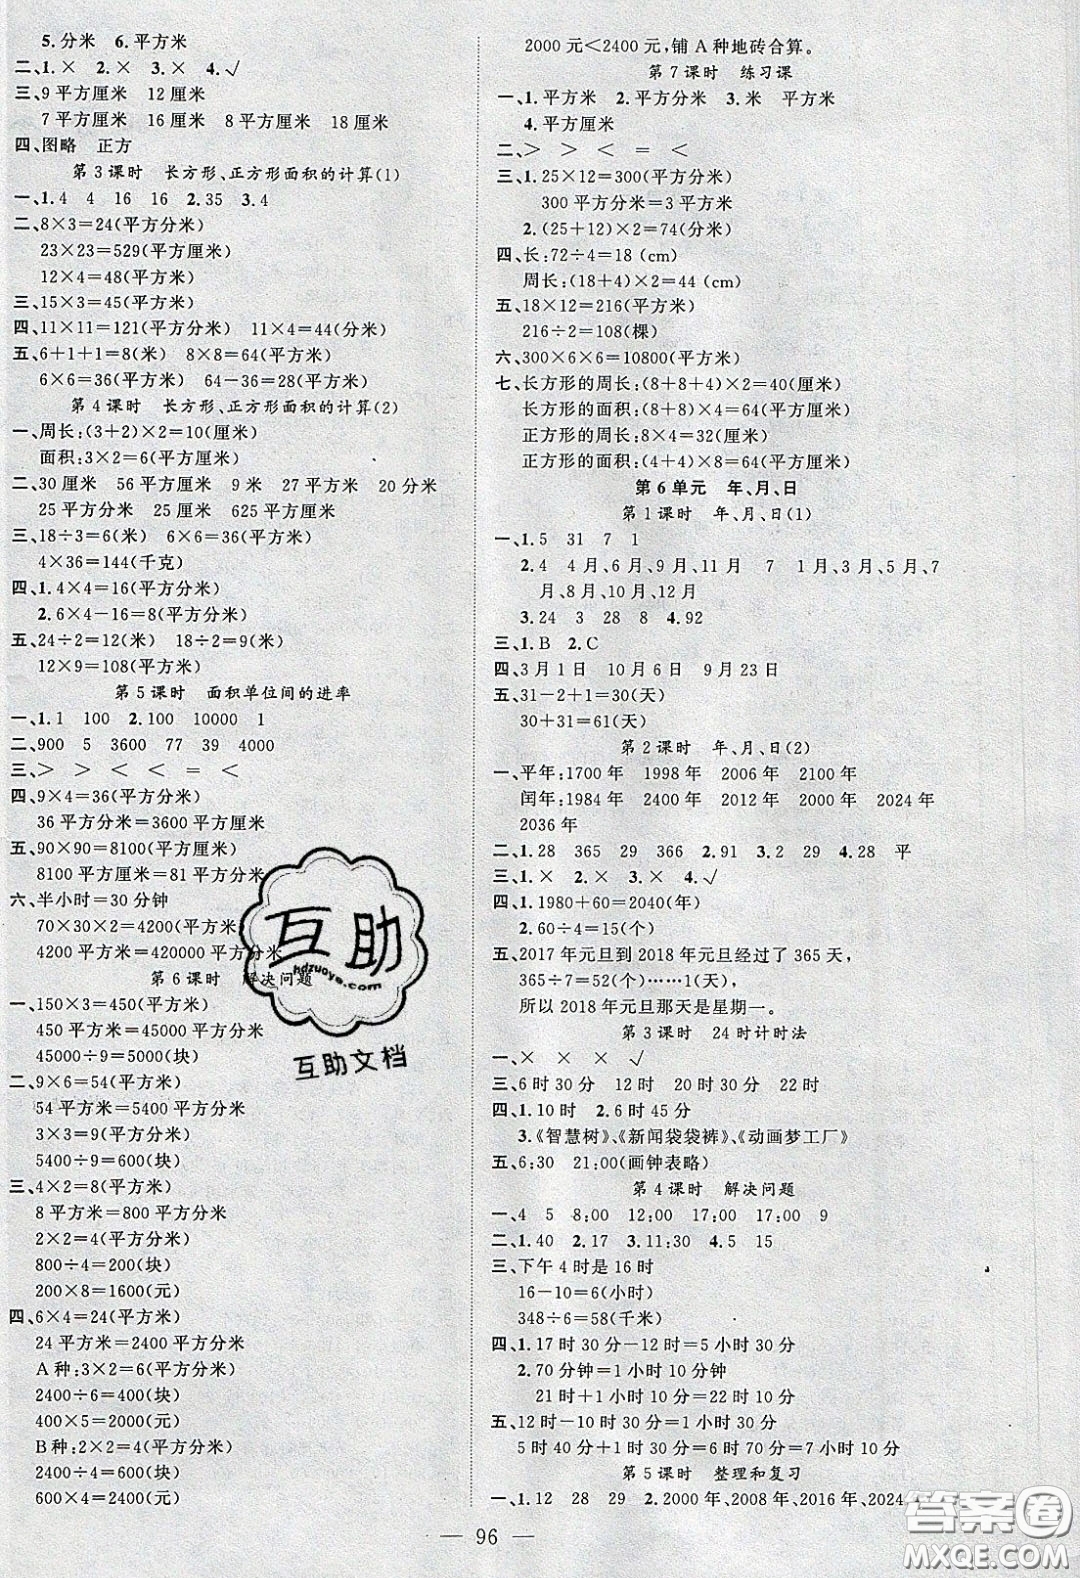 5.分米 6.平方米
二、1.× 2.× 3.× 4.√
三、9 平方厘米 12 厘米
7 平方厘米 16 厘米 8 平方厘米 18 厘米
四、图略 正方
第 3 课时 长方形、正方形面积的计算(1)
一、1.4 4 16 16 2.35 3.4
二、8×3=24(平方分米)
23×23=529(平方厘米)
12×4=48(平方米)
三、15×3=45(平方米)
四、11×11=121(平方分米) 11×4=44(分米)
五、6+1+1=8(米) 8×8=64(平方米)
6×6=36(平方米) 64-36=28(平方米)
第 4 课时 长方形、正方形面积的计算(2)
一、周长:(3+2)×2=10(厘米)
面积:3×2=6(平方厘米)
二、30 厘米 56 平方厘米 9 米 27 平方米 20 分米
25 平方分米 25 厘米 625 平方厘米
三、18÷3=6(米) 6×6=36(平方米)
4×36=144(千克)
四、1.4×4=16(平方分米)
2.6×4-16=8(平方分米)
五、24÷2=12(米) 18÷2=9(米)
12×9=108(平方米)
第 5 课时 面积单位间的进率
一、1.1 100 2.100 10000 1
二、900 5 3600 77 39 4000
三、> > < < = <
四、9×4=36(平方分米)
36 平方分米=3600 平方厘米
五、90×90=8100(平方厘米)
8100 平方厘米=81 平方分米
六、半小时=30 分钟
70×30×2=4200(平方米)
4200 平方米=420000 平方分米
第 6 课时 解决问题
一、150×3=450(平方米)
450 平方米=45000 平方分米
45000÷9=5000(块)
二、9×6=54(平方米)
54 平方米=5400 平方分米
3×3=9(平方分米)
5400÷9=600(块)
三、4×2=8(平方米)
8 平方米=800 平方分米
2×2=4(平方分米)
800÷4=200(块)
200×8=1600(元)
四、6×4=24(平方米)
24 平方米=2400 平方分米
A 种:3×2=6(平方分米)
2400÷6=400(块)
400×5=2000(元)
B 种:2×2=4(平方分米)
2400÷4=600(块)
600×4=2400(元)
2000 元<2400 元,铺 A 种地砖合算。
第 7 课时 练习课
一、1.平方米 2.平方分米 3.米 平方米
4.平方厘米
二、> > < = <
三、1.25×12=300(平方分米)
300 平方分米=3 平方米
2.(25+12)×2=74(分米)
四、长:72÷4=18 (cm)
周长:(18+4)×2=44 (cm)
五、18×12=216(平方米)
216÷2=108(棵)
六、300×6×6=10800(平方米)
七、长方形的周长:(8+8+4)×2=40(厘米)
长方形的面积:(8+8)×4=64(平方厘米)
正方形的周长:8×4=32(厘米)
正方形的面积:(4+4)×8=64(平方厘米)
第 6 单元 年、月、日
第 1 课时 年、月、日(1)
一、1.5 31 7 1
2.4 4月、6月、9月、11月 7 1月、3月、5月、7
月、8月、10月、12月
3.24 3 28 8 4.92
三、1.B 2.C
四、3 月 1 日 10 月 6 日 9 月 23 日
五、31-2+1=30(天)
30+31=61(天)
第 2 课时 年、月、日(2)
一、平年:1700 年 1998 年 2006 年 2100 年
闰年:1984 年 2400 年 2012 年 2000 年 2024 年
2036 年
二、1.28 365 29 366 2.91 3.2 29 4.28 平
三、1.× 2.× 3.× 4.√
四、1.1980+60=2040(年)
2.60÷4=15(个)
五、2017 年元旦到 2018 年元旦经过了 365 天,
365÷7=52(个)……1(天)
所以 2018 年元旦那天是星期一。
第 3 课时 24 时计时法
一、× × × √
三、6 时 30 分 12 时 20 时 30 分 22 时
四、1.10 时 2.6 时 45 分
3.《智慧树》、《新闻袋袋裤》、《动画梦工厂》
五、6:30 21:00(画钟表略)
第 4 课时 解决问题
一、4 5 8:00 12:00 17:00 17:00 9
二、1.40 2.17 3.11:30 4.5 15
三、下午 4 时是 16 时
16-10=6(小时)
348÷6=58(千米)
四、1.17 时 30 分-12 时=5 小时 30 分
2.70 分钟=1 小时 10 分钟
21 时+1 小时 10 分=22 时 10 分
五、12 时-10 时 30 分=1 小时 30 分
5 时 40 分+1 小时 30 分=7 时 10 分
第 5 课时 整理和复习
一、1.12 28 29 2.2000 年、2008 年、2016 年、2024
96
互助
hdzuoye.com
互助文档
答案圈
MXQE.COM